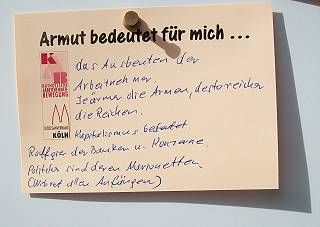 Armut bedeutet für mich ...
das Ausbeuten der
Arbeitnehmer.
Je ärmer die Armen, desto reicher
die Reichen.
Kapitalismus bedeutet
Raffgier der Banken u. Konzerne.
Politiker sind deren Marionetten.
(Wehret allen Anfängen)
KATHOLISCHE
ARBEITNEHMER
BEWEGUNG
KÖLN